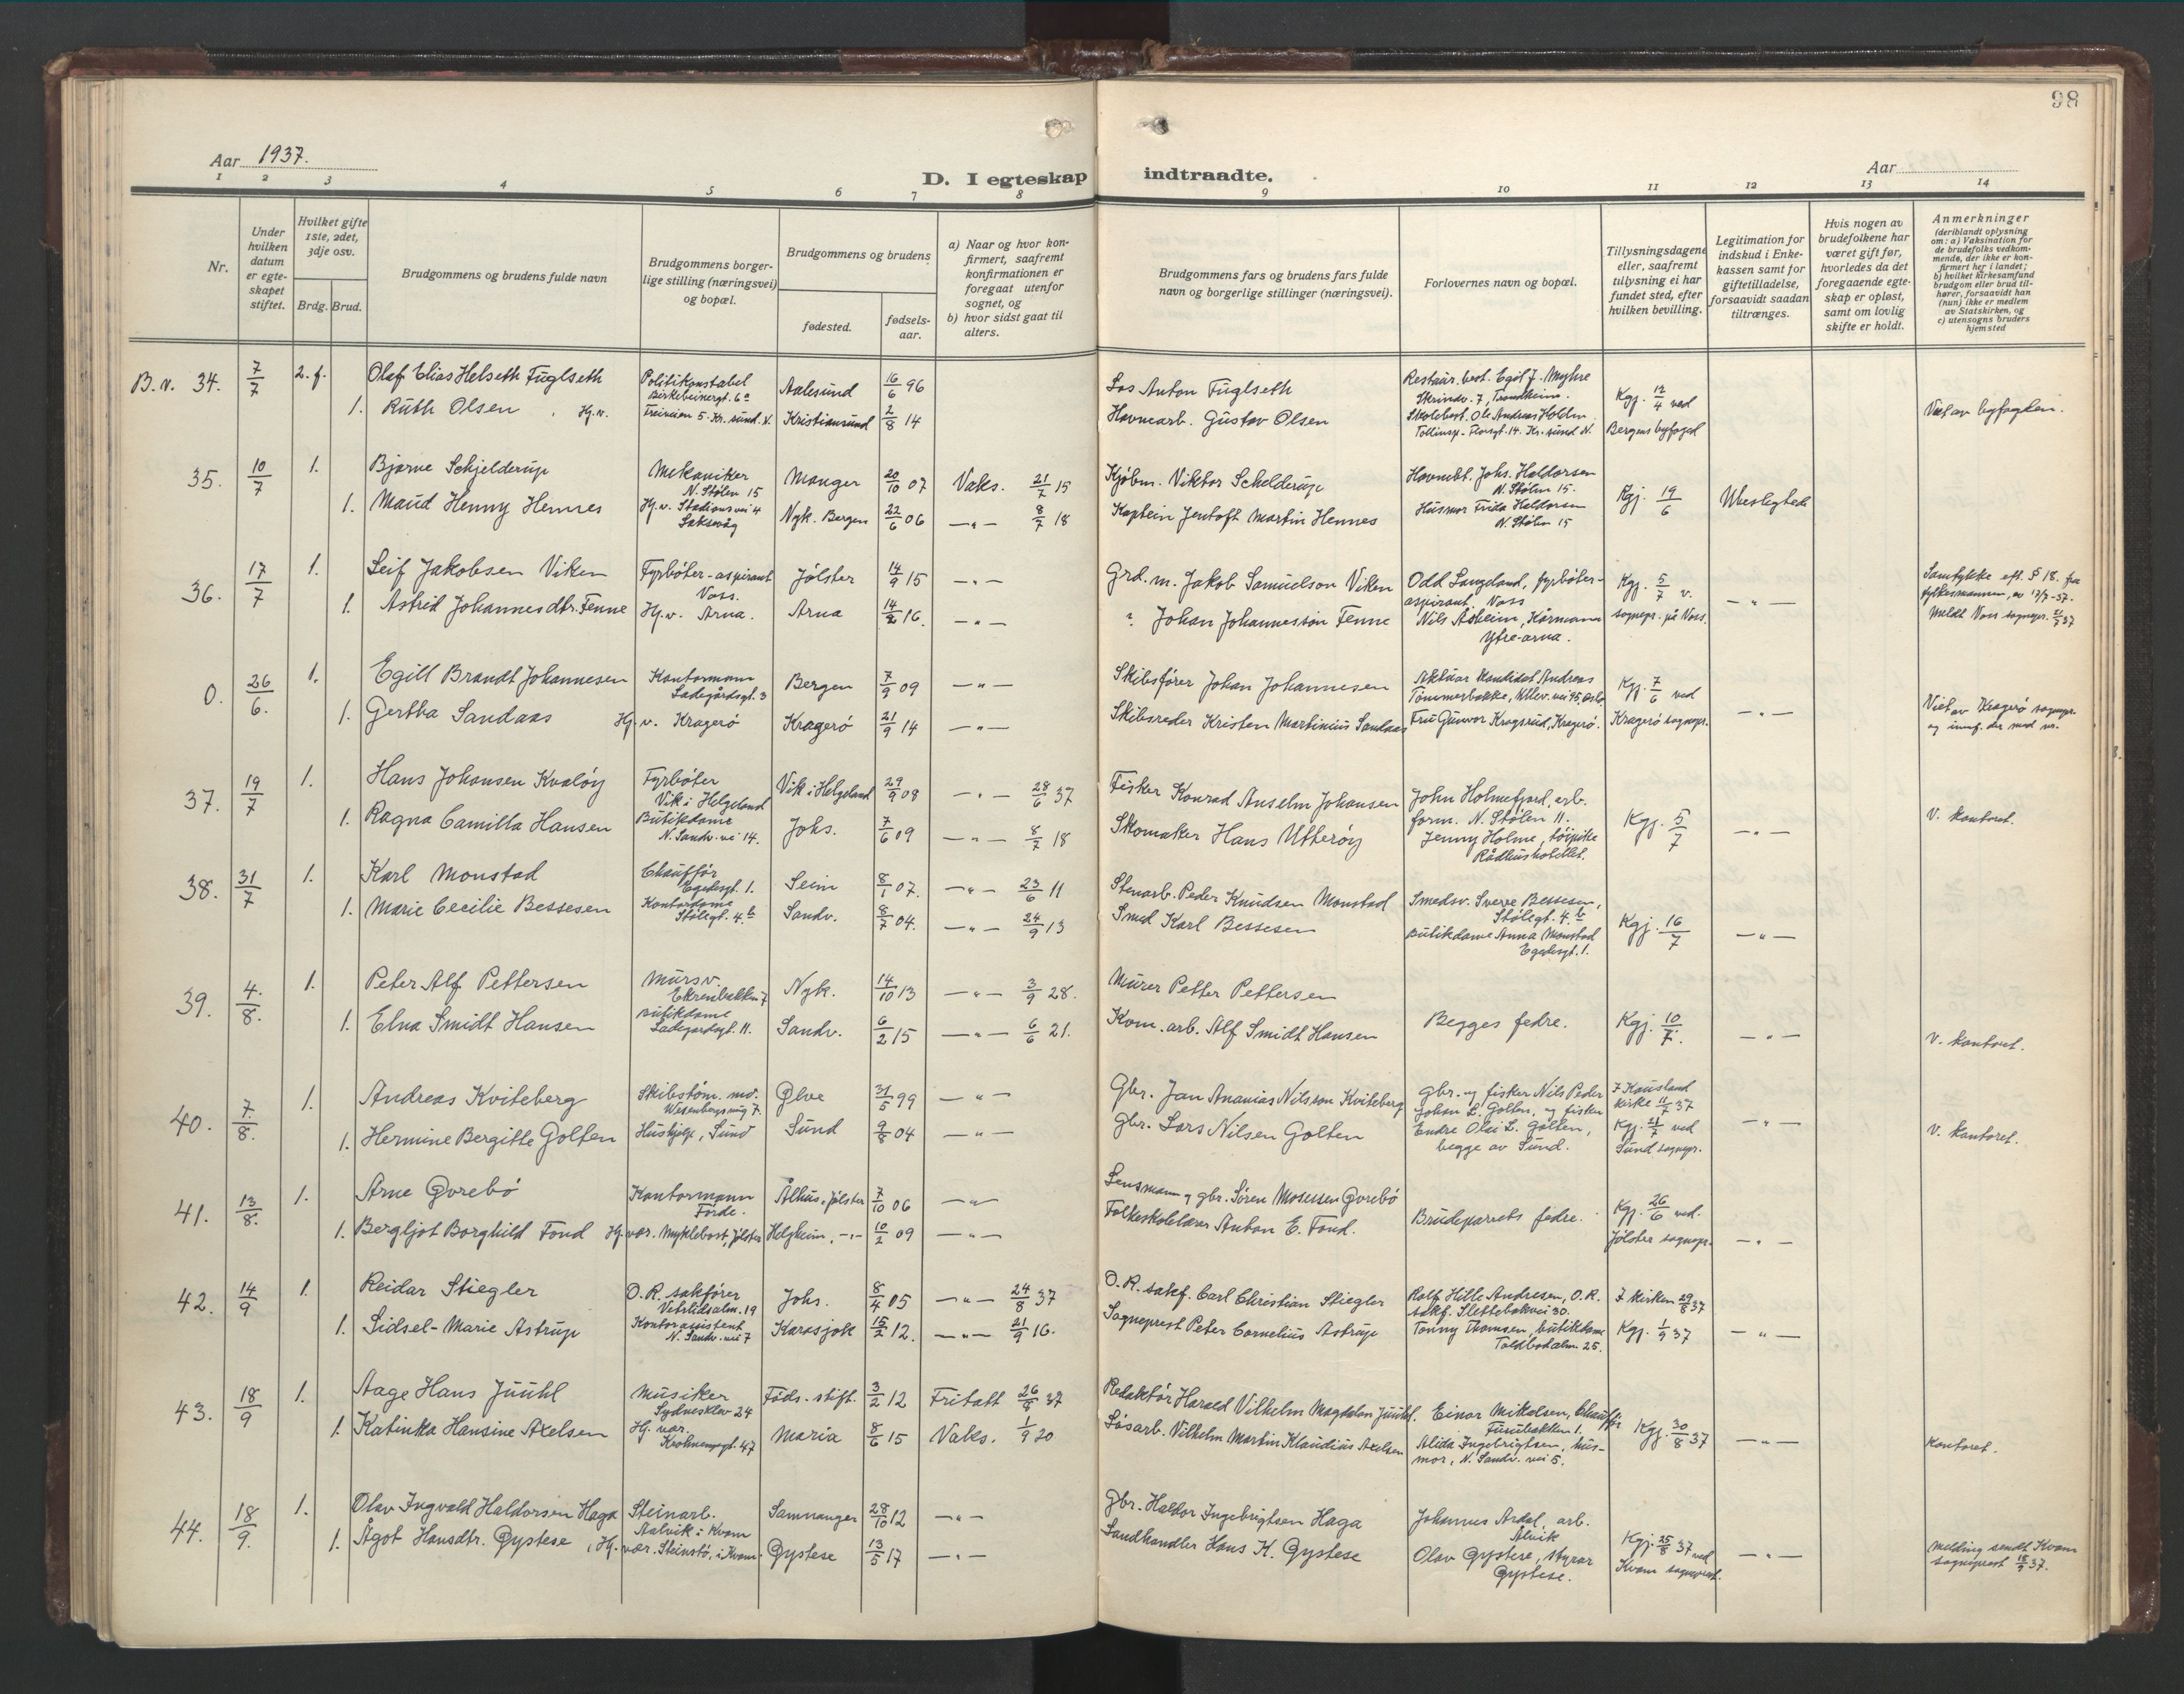 98
Aar 1937.
D. I egteskap indtraadte.
Aar
1 2 3 4 5 6 7 8 9 10 11 12 13 14
Nr.
Under hvilken datum er egteskapet stiftet.
Hvilket gifte 1ste, 2det, 3dje osv.
Brdg. Brud.
Brudgommens og brudens fulde navn
Brudgommens borgerlige stilling (næringsvei) og bopæl.
Brudgommens og brudens
fødested.
fødselsaar.
a) Naar og hvor konfirmert, saafremt konfirmationen er foregaat utenfor sognet, og
b) hvor sidst gaat til alters.
Brudgommens fars og brudens fars fulde navn og borgerlige stillinger (næringsvei).
Forlovernes navn og bopæl.
Tillysningsdagene eller, saafremt tillysning ei har fundet sted, efter hvilken bevilling.
Legitimation for indskud i Enkekassen samt for giftetilladelse, forsaavidt saadan tiltrænges.
Hvis nogen av brudefolkene har været gift før, hvorledes da det foregaaende egteskap er opløst, samt om lovlig skifte er holdt.
Anmerkninger (deriblandt oplysning om: a) Vaksination for de brudefolks vedkommende, der ikke er konfirmert her i landet; b) hvilket kirkesamfund brudgom eller brud tilhører, forsaavidt han (hun) ikke er medlem av Statskirken, og c) utensogns bruders hjemsted
B.v. 34. 7/7 2. f. Olaf Elias Helseth Fuglseth Politikonstabel Birkebeinergt. 6a Aalesund 16/6 96 Los Anton Fuglseth Restaur. best. Egil F. Myhre Skrindv. 7, Trondheim. Kgj. 12/4 ved Bergens byfoged Viet av byfogden.
1. Ruth Olsen, Hj.v. Freiveien 5. Kr.sund. N. Kristiansund 2/8 14 Havnearb. Gustav Olsen Skolebest. Ole Andreas Holdm 14. Kr.sund N.
35. 10/7 1. Bjarne Schjelderup Mekaniker N. Stølen 15 Manger 20/10 07 Vaks. 21/7 15 Kjøbm. Viktor Schelderup Johs. Haldorsen N. Stølen 15. Kgj. 19/6 Ubeslegtede
1. Maud Henny Hennes Hj.v. Stadionsvei 4 Laksevåg Nyk. Bergen 22/6 06 —"— 8/7 18 Kaptein Jentoft Martin Hennes Husmor Frida Haldorsen N. Stølen 15
36. 17/7 1. Leif Jakobsen Viken Fyrbøter-aspirant Voss. Jølster 14/9 15 —"— Grd.m. Jakob Samuelson Viken Odd Langeland, fyrbøter-aspirant, Voss Kgj. 5/7 v. sognepr. på Voss. —"— Samtykke eft. § 18. fra fylkesmannen, av 13/7-37.
1. Astrid Johannesdtr. Fenne Hj.v. Arna. Arna 14/2 16. —"— " Johan Johannesson Fenne Nils Åsheim, Kårmann Ytre-arna. Meldt Voss sognepr. 21/7 37
0. 26/6. 1. Egill Brandt Johannesen Kontormann Ladegårdsgt. 3 Bergen 7/9 09 —"— Skibsfører Johan Johannesen Aktuar Kandidat Andreas Tømmerbakke, Ullev.vei 95, Oslo Kgj. 7/6 ved Kragerø sognepr. —"— Viet av Kragerø sognepr. og innf. der med nr.
1. Gertha Sandaas Hj.v. Kragerø Kragerø 21/9 14 —"— Skibsreder Kristen Martinius Sandaas Fru Gunvor Krogsrud, Kragerø.
37. 19/7 1. Hans Johansen Kvaløy Fyrbøter Vik i Helgeland Vik i Helgeland 29/9 08 —"— 28/6 37 Fisker Konrad Anselm Johansen John Holmefjord, arb. form. N. Stølen 11. Kgj. 5/7 —"— V. kontoret.
1. Ragna Camilla Hansen Butikdame N. Sandv. vei 14. Johs. 7/6 09 —"— 8/7 18 Skomaker Hans Utterøy Jenny Holme, tøipike Rådhushotellet.
38. 31/7 1. Karl Monstad Chauffør Egedesgt. 1. Seim 8/1 07. —"— 23/6 11 Stenarb. Peder Knudsen Monstad Smedsv. Sverre Bessesen, Stølegt. 4 b Kgj. 16/7 —"—
1. Marie Cecilie Bessesen Kontordame Stølegt. 4 b Sandv. 8/7 04. —"— 24/9 13 Smed Karl Bessesen Butikdame Anna Monstad Egedesgt. 1.
39. 4./8. 1. Peter Alf Pettersen Mursv. Ekrenbakken 7 Nyk. 14/10 13 —"— 3/9 28. Murer Petter Pettersen Begges fedre. Kgj. 10/7. —"— V. kontoret.
1. Elna Smidt Hansen Butikdame Ladegårdsgt. 11. Sandv. 6/2 15 —"— 6/6 21. Kom. arb. Alf Smidt Hansen
40. 7./8. 1. Andreas Kviteberg Skibstøm. Wesenbergsmug 7. Ølve 31/5 99 —"— Gbr. Jan Ananias Nilsson Kviteberg Gbr. og fisker Nils Peder Johan L. Golten, og fisker I Kausland kirke 11/7 37
1. Hermine Bergitte Golten Hushjelp, Sund Sund 9/8 04 —"— Gbr. Lars Nilsen Golten Endre Olai L. Golten, begge av Sund. Kgj. 21/7 ved Sund sognepr. —"— V. kontoret.
41. 13/8. 1. Arne Øvrebø Kontormann Førde. Ålhus, Jølster 7/10 06 —"— Lensmann og gbr. Søren Mosessen Øvrebø Brudeparrets fedre. Kgj. 26/6 ved. Jølster sognepr. —"—
1. Bergljot Borghild Fond Hj.vær. Myklebost, Jølster Helgheim, —"— 10/2 09 —"— Folkeskolelærer Anton E. Fond.
42. 14/9 1. Reidar Stiegler O.R. sakfører Vetrlidsalm. 19 Johs. 8/4 05 —"— 24/8 37 O.R. sakf. Carl Christian Stiegler Rolf Hille Andresen, O.R. sakf. Slettebakvei 30. I kirken 29/8 37
1. Sidsel-Marie Astrup Kontorassistent N. Sandv. vei 7 Karasjok 15/2 12. —"— 21/9 16. Sogneprest Peter Cornelius Astrup Tonny Thomsen, butikdame Toldbodalm. 25. Kgj. 1/9 37 —"—
43. 18/9 1. Aage Hans Juuhl Musiker Sydneskleiv 24 Føds.-stift. 3/2 12 Fritatt 26/8 37 Redaktør Harald Vilhelm Magdalon Juuhl. Einar Mikalsen, Chauffør Furubakken 1. Kgj. 30/8 37 —"— Kontoret.
1. Katinka Hansine Axelsen Hj. vær. Krohnengt. 47 Maria 8/6 15 Vaks. 1/9 20 Løsarb. Vilhelm Martin Klaudius Axelsen Alida Ingebrigtsen, husmor, N. Sandv. vei 5.
44. 18/9. 1. Olav Ingvald Haldorsen Haga Steinarb. Aalvik i Kvam Samnanger 28/10 12 —"— Gbr. Haldor Ingebrigtsen Haga Johannes Ardal, arb. Alvik Kgj. 25/8 37 ved Kvam sogneprest. —"— Melding sendt Kvam sogneprest 18/9 37.
1. Ågot Hansdtr. Øystese, Hj. vær. Steinstø, i Kvam. Øystese 13/5 17 —"— Landhandler Hans K. Øystese Olav Øystese, styrar Øystese.